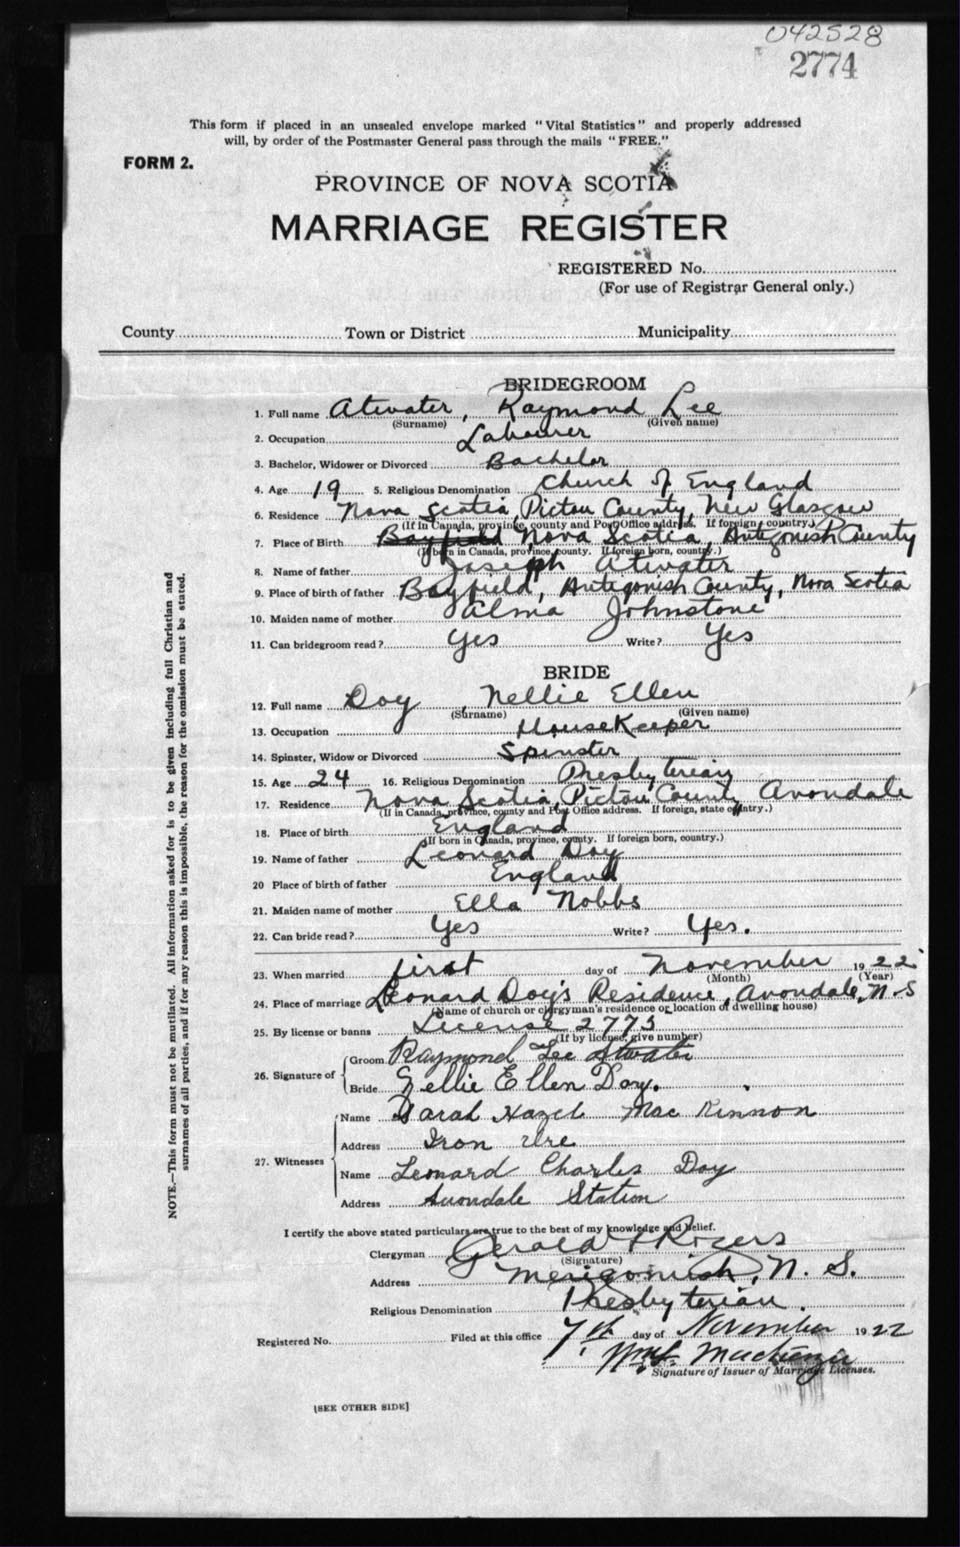 042528
2774
This form if placed in an unsealed envelope marked "Vital Statistics" and properly addressed
will, by order of the Postmaster General pass through the mails "FREE."
FORM 2.
PROVINCE OF NOVA SCOTIA
MARRIAGE REGISTER
REGISTERED No.
(For use of Registrar General only.)
County Town or District Municipality
BRIDEGROOM
1. Full name Atwater, Raymond Lee
(Surname) (Given name)
2. Occupation Labourer
3. Bachelor, Widower or Divorced Bachelor
4. Age 19 5. Religious Denomination Church of England
6. Residence Nova Scotia, Pictou County, New Glasgow
(If in Canada, province, county and Post Office address. If foreign, country.)
7. Place of Birth Bayfield Nova Scotia, Antigonish County
(If born in Canada, province, county. If foreign born, country.)
8. Name of father Joseph Atwater
9. Place of birth of father Bayfield, Antigonish County, Nova Scotia
10. Maiden name of mother Alma Johnstone
11. Can bridegroom read? Yes Write? Yes
BRIDE
12. Full name Doy, Nellie Ellen
(Surname) (Given name)
13. Occupation HouseKeeper
14. Spinster, Widow or Divorced Spinster
15. Age 24 16. Religious Denomination Presbyterian
17. Residence Nova Scotia, Pictou County Avondale
(If in Canada, province, county and Post Office address. If foreign, state country.)
18. Place of birth England
(If born in Canada, province, county. If foreign born, country.)
19. Name of father Leonard Doy
20 Place of birth of father England
21. Maiden name of mother Ella Nobbs
22. Can bride read? Yes Write? Yes.
23. When married first day of November 1922
(Month) (Year)
24. Place of marriage Leonard Doy's Residence, Avondale, N.S
(Name of church or clergyman's residence or location of dwelling house)
25. By license or banns License 2773
(If by license, give number)
26. Signature of Groom Raymond Lee Atwater
Bride Nellie Ellen Doy.
27. Witnesses Name Sarah Hazel Mac Kinnon
Address Iron Ore
Name Leonard Charles Doy
Address Avondale Station
I certify the above stated particulars are true to the best of my knowledge and belief.
Clergyman Gerald Rogers
(Signature)
Address Merigomish, N. S.
Religious Denomination Presbyterian.
Registered No. Filed at this office 7th day of November 1922
Mackenzie
Signature of Issuer of Marriage Licenses.
[SEE OTHER SIDE]
NOTE.—This form must not be mutilated. All information asked for is to be given including full Christian and
surnames of all parties, and if for any reason this is impossible, the reason for the omission must be stated.